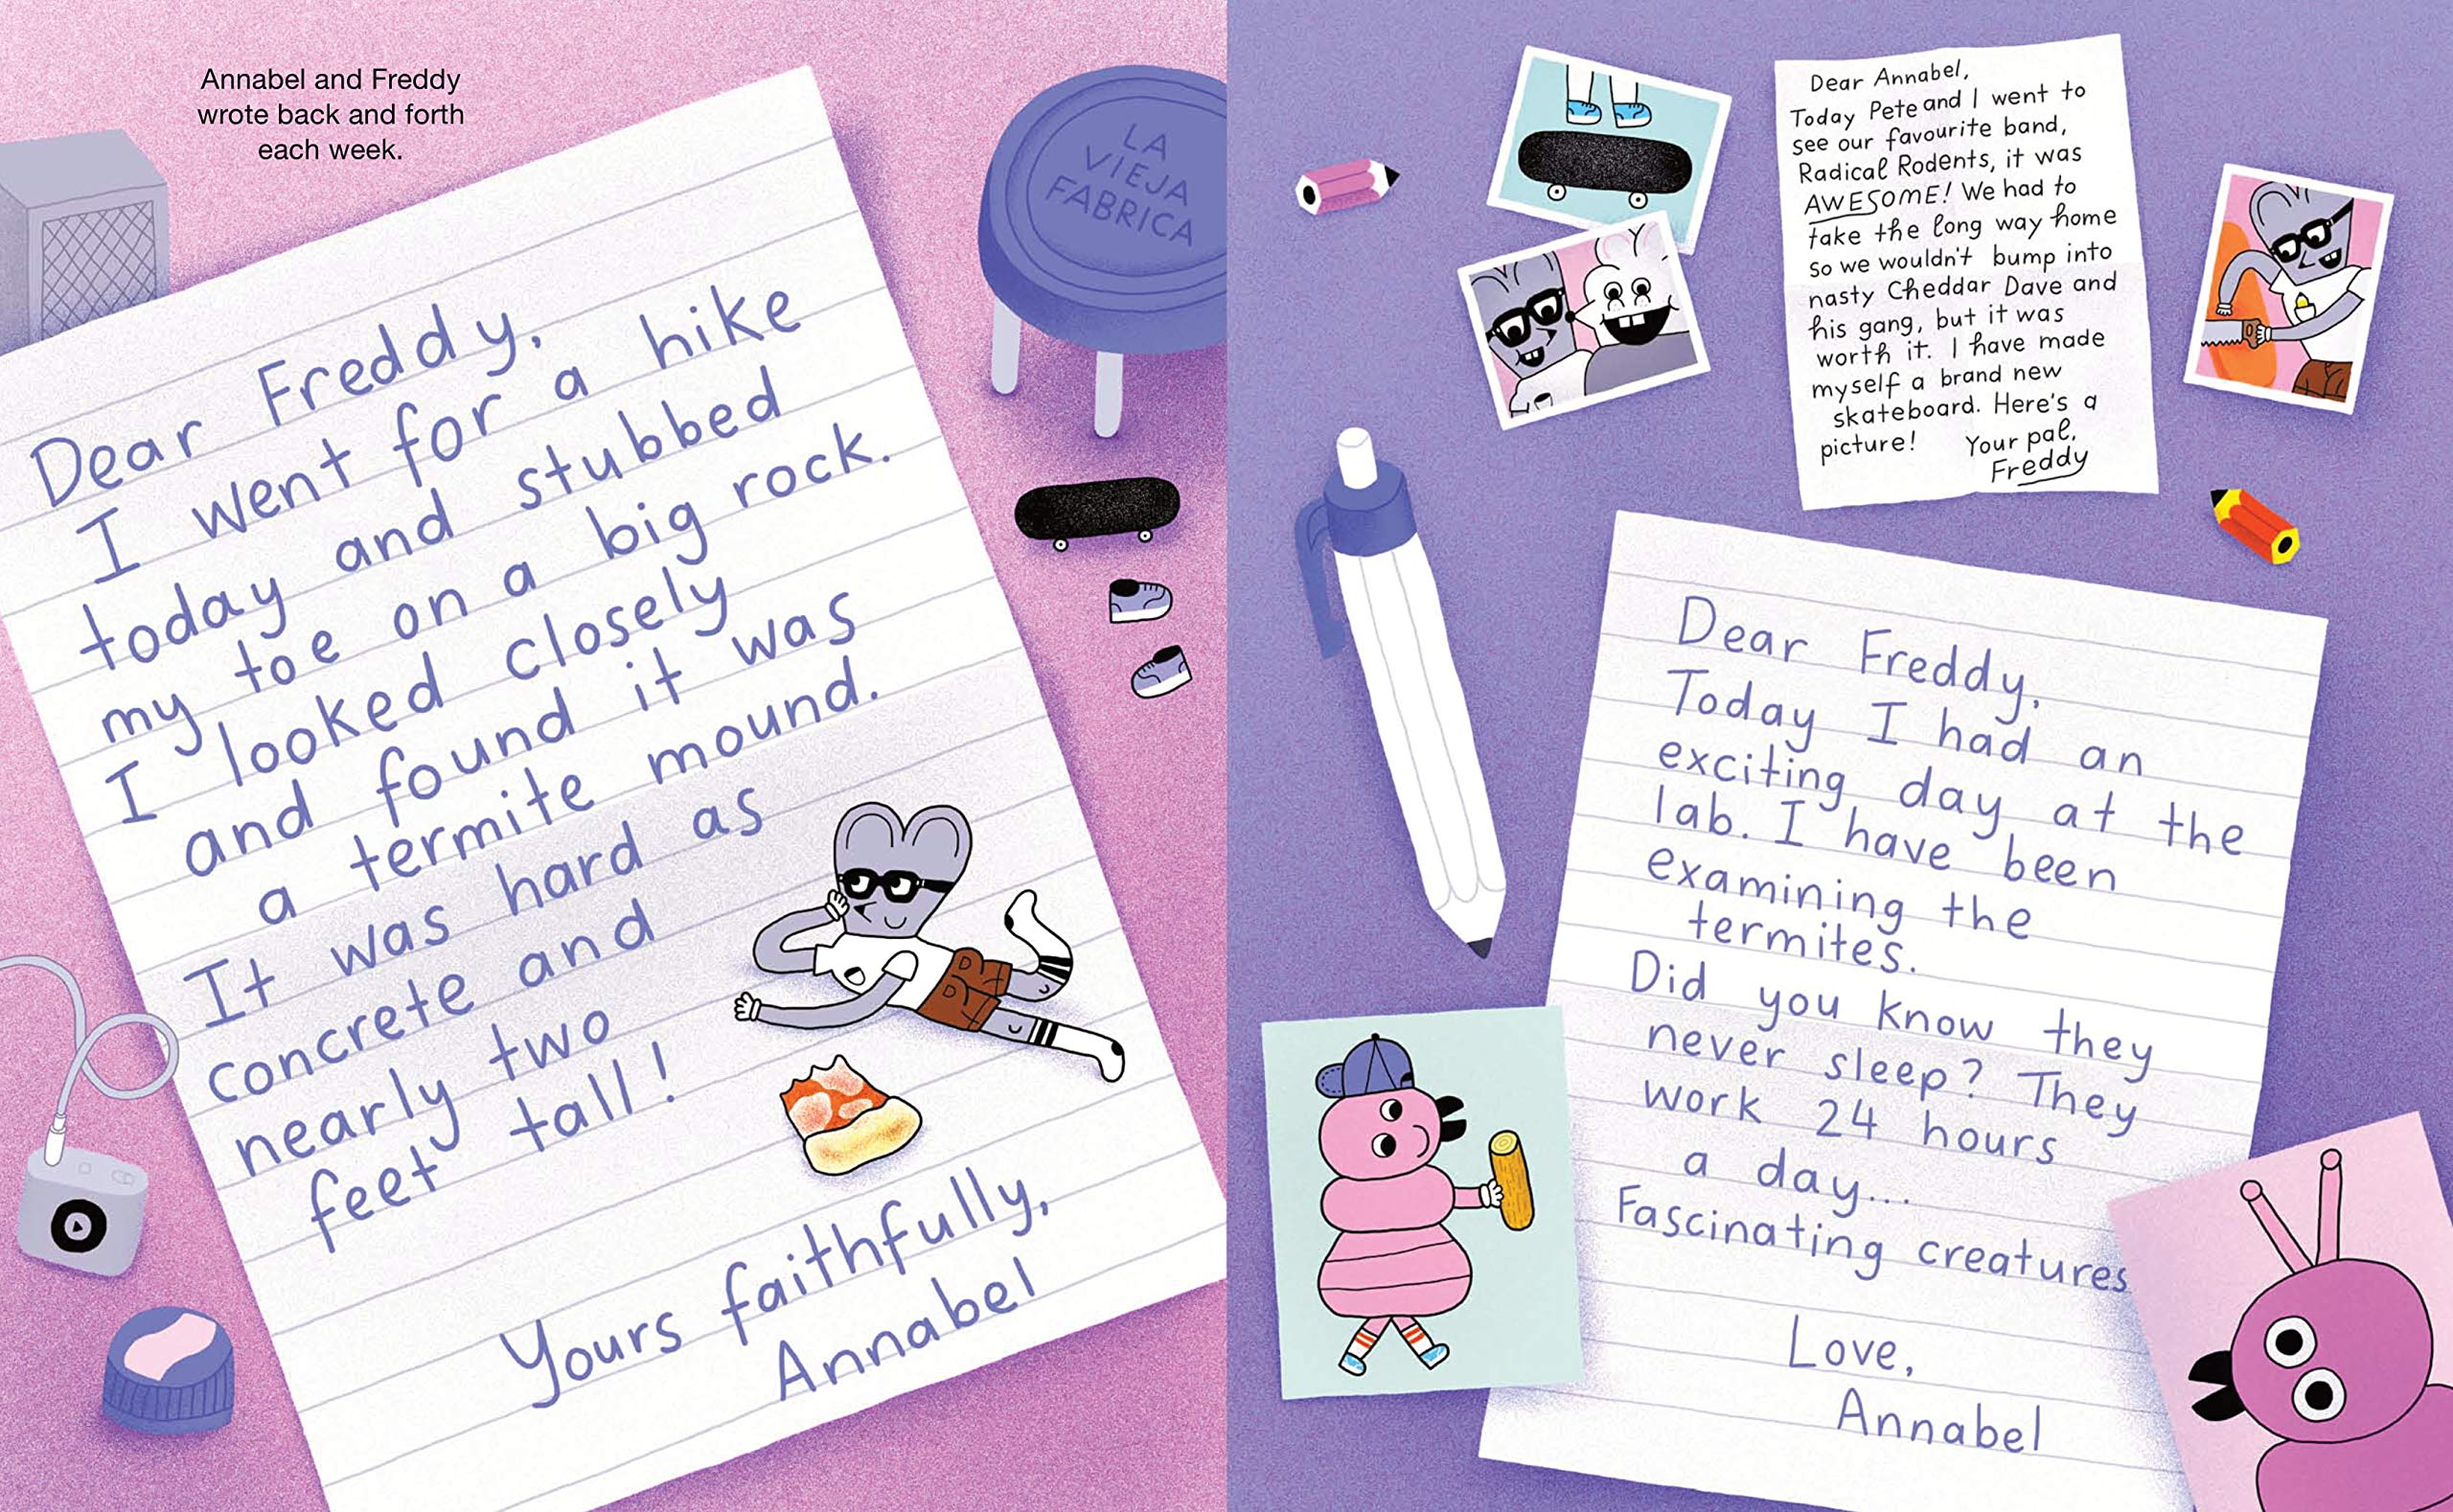 Annabel and Freddy
wrote back and forth
each week.
LA
VIEJA
FABRICA
Dear Freddy,
I went for a hike
today and stubbed
my toe on a big rock.
I looked closely
and found it was
a termite mound.
It was hard as
concrete and
nearly two
feet tall!
Yours faithfully,
Annabel
Dear Annabel,
Today Pete and I went to
see our favourite band,
Radical Rodents, it was
AWESOME! We had to
take the long way home
so we wouldn't bump into
nasty Cheddar Dave and
his gang, but it was
worth it. I have made
myself a brand new
skateboard. Here's a
picture! Your pal,
Freddy
Dear Freddy,
Today I had an
exciting day at the
lab. I have been
examining the
termites.
Did you know they
never sleep? They
work 24 hours
a day...
Fascinating creatures
Love,
Annabel